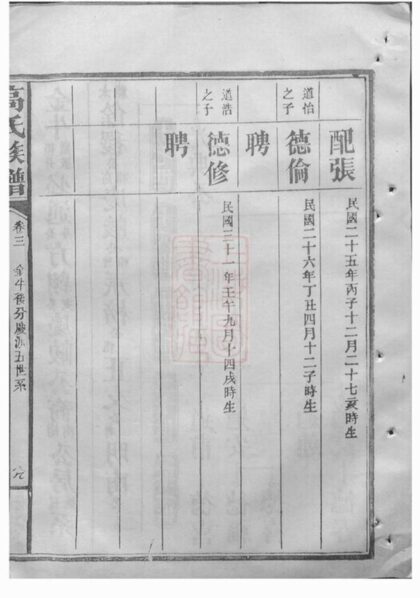 配張 民國二十五年丙子十二月二十七亥時生
道怡之子 德倫 民國二十六年丁丑四月十二子時生
聘
道浩之子 德修 民國三十一年壬午九月十四戌時生
聘
高氏族譜
卷三
五世系